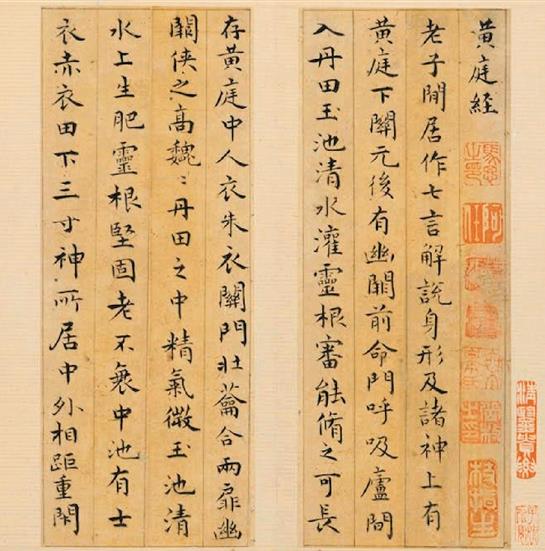 黃庭経
老子閒居作七言解說身形及諸神上有
黃庭下關元後有幽闕前命門呼吸廬間
入丹田玉池清水灌靈根審能脩之可長
存黃庭中人衣朱衣關門壯蘥合兩扉幽
闕俠之高魏〻丹田之中精氣微玉池清
水上生肥靈根堅固老不衰中池有士
衣赤衣田下三寸神所居中外相距重閇